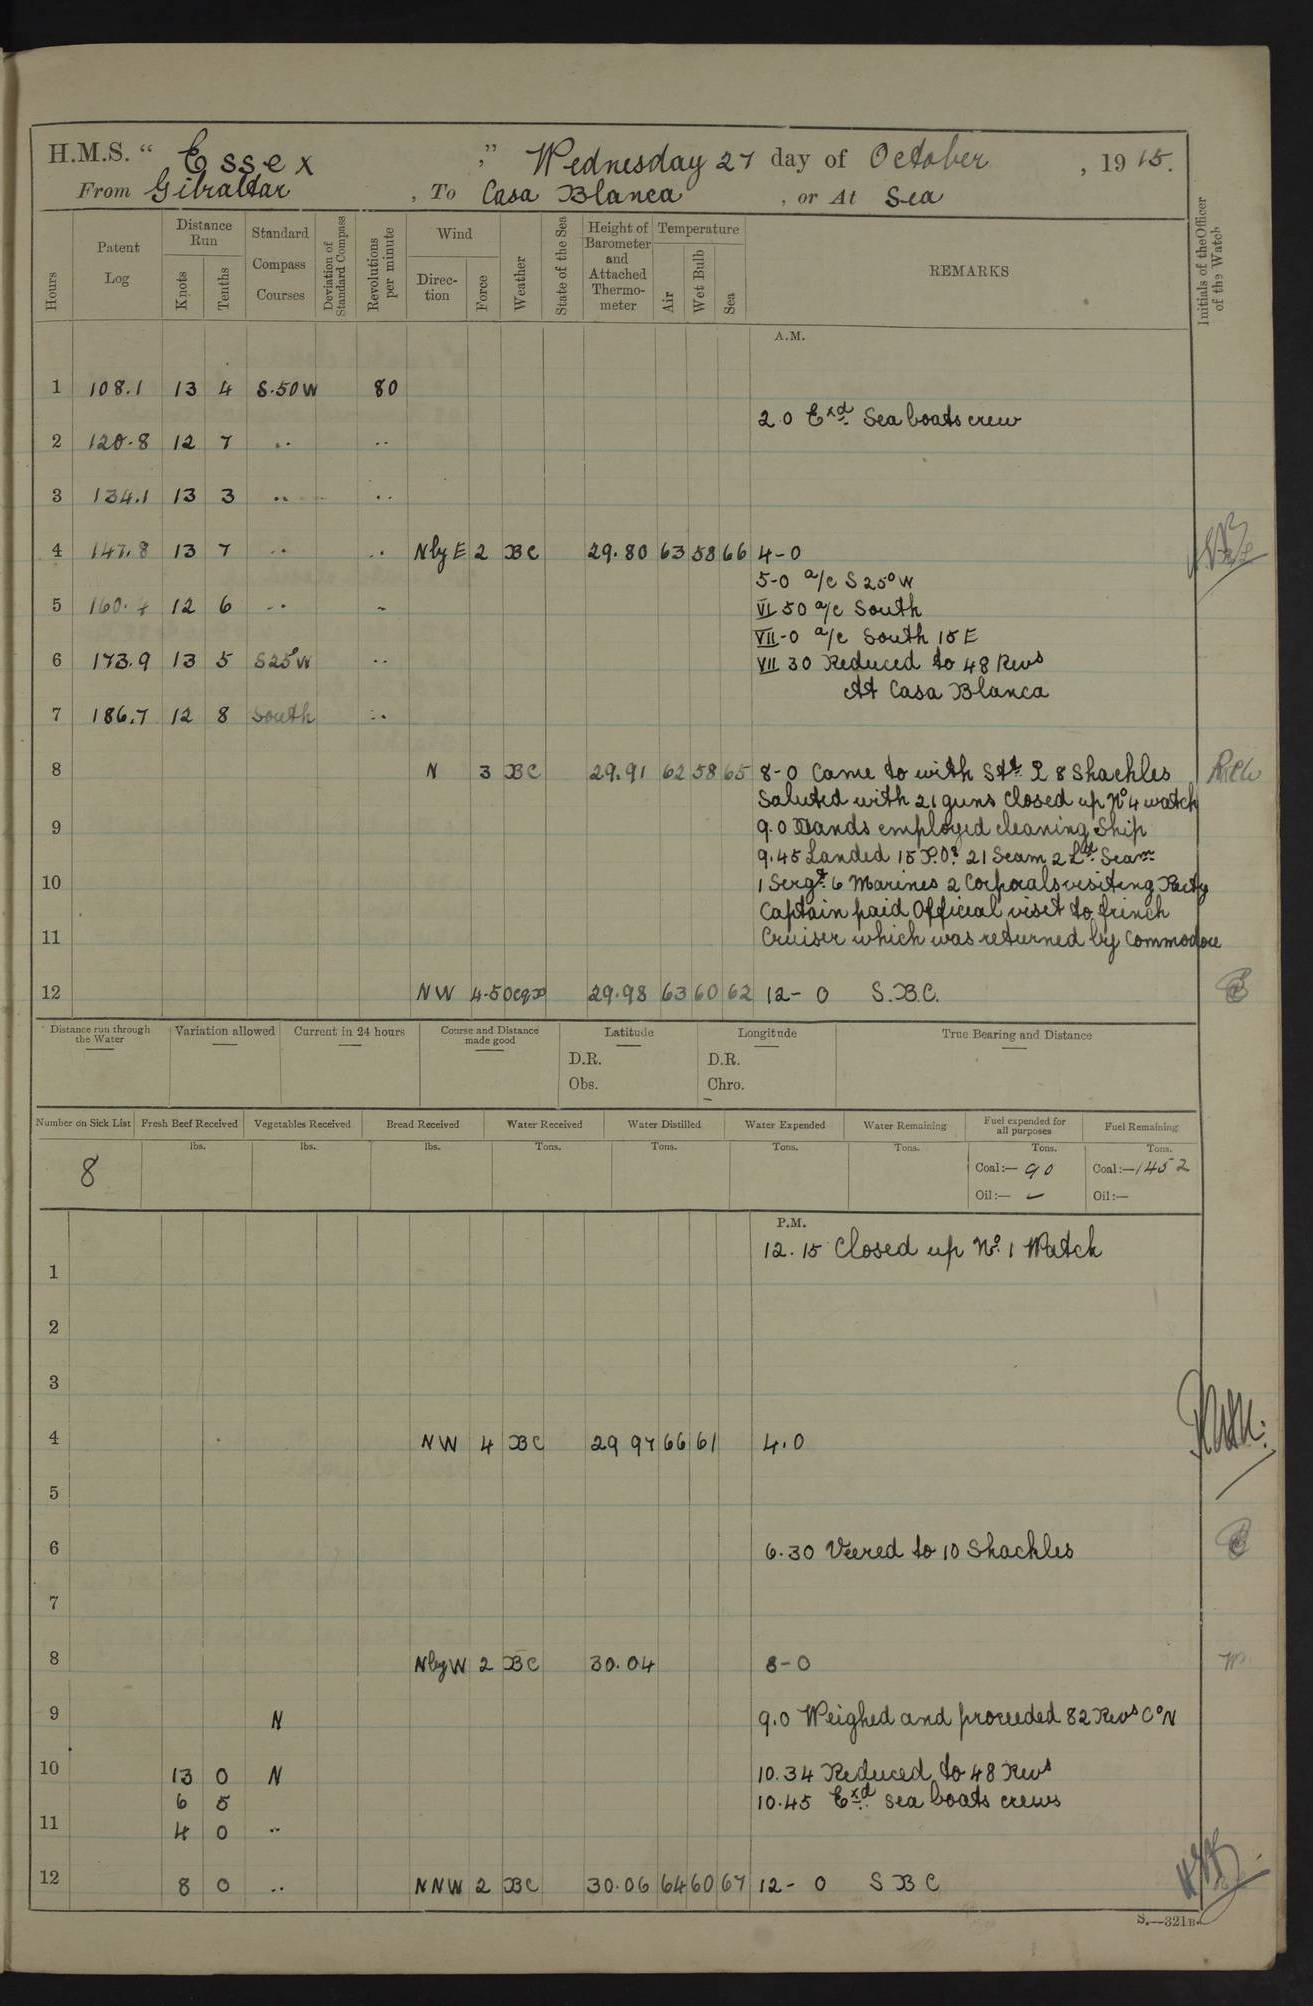 H.M.S. “ Essex ,” Wednesday 27 day of October , 19 15.
From Gibraltar , To Casa Blanca , or At Sea
Hours Patent Log Distance Run Knots Tenths Standard Compass Courses Deviation of Standard Compass Revolutions per minute Wind Direction Force Weather State of the Sea Height of Barometer and Attached Thermometer Temperature Air Wet Bulb Sea REMARKS Initials of the Officer of the Watch
A.M.
1 108.1 13 4 S.50W 80
2.0 Exd Sea boats crew
2 120.8 12 7 .. ..
3 134.1 13 3 .. ..
4 147.8 13 7 .. .. N by E 2 BC 29.80 63 58 66 4-0
5-0 a/c S 25° W
5 160.4 12 6 .. ..
VI 50 a/c South
VII-0 a/c South 15 E
6 173.9 13 5 S25°W .. VII 30 Reduced to 48 Revs
At Casa Blanca
7 186.7 12 8 South ..
8 N 3 BC 29.91 62 58 65 8-0 Came to with Stt P 8 Shackles
Saluted with 21 guns Closed up No 4 watch
9 9.0 Hands employed cleaning Ship
9.45 Landed 15 P.Os 21 Seam 2 Ld Seam
10 1 Sergt 6 Marines 2 Corporals visiting Party
Captain paid Official visit to french
11 Cruiser which was returned by Commodore
12 NW 4-5 29.98 63 60 62 12- 0 S.B.C.
Distance run through the Water Variation allowed Current in 24 hours Course and Distance made good Latitude Longitude True Bearing and Distance
D.R. D.R.
Obs. Chro.
Number on Sick List Fresh Beef Received Vegetables Received Bread Received Water Received Water Distilled Water Expended Water Remaining Fuel expended for all purposes Fuel Remaining
lbs. lbs. lbs. Tons. Tons. Tons. Tons. Tons. Tons.
8 Coal:— 90 Coal:— 1452
Oil:— — Oil:—
P.M.
12.15 Closed up No. 1 Watch
1
2
3
4 NW 4 BC 29 97 66 61 4.0
5
6 6.30 Veered to 10 Shackles
7
8 N by W 2 BC 30.04 8-0
9 N 9.0 Weighed and proceeded 82 Revs Co N
10 13 0 N 10.34 Reduced to 48 Revs
6 5 10.45 Exd sea boats crews
11 4 0 ..
12 8 0 .. NNW 2 BC 30.06 64 60 67 12- 0 S B C
S.—321B.